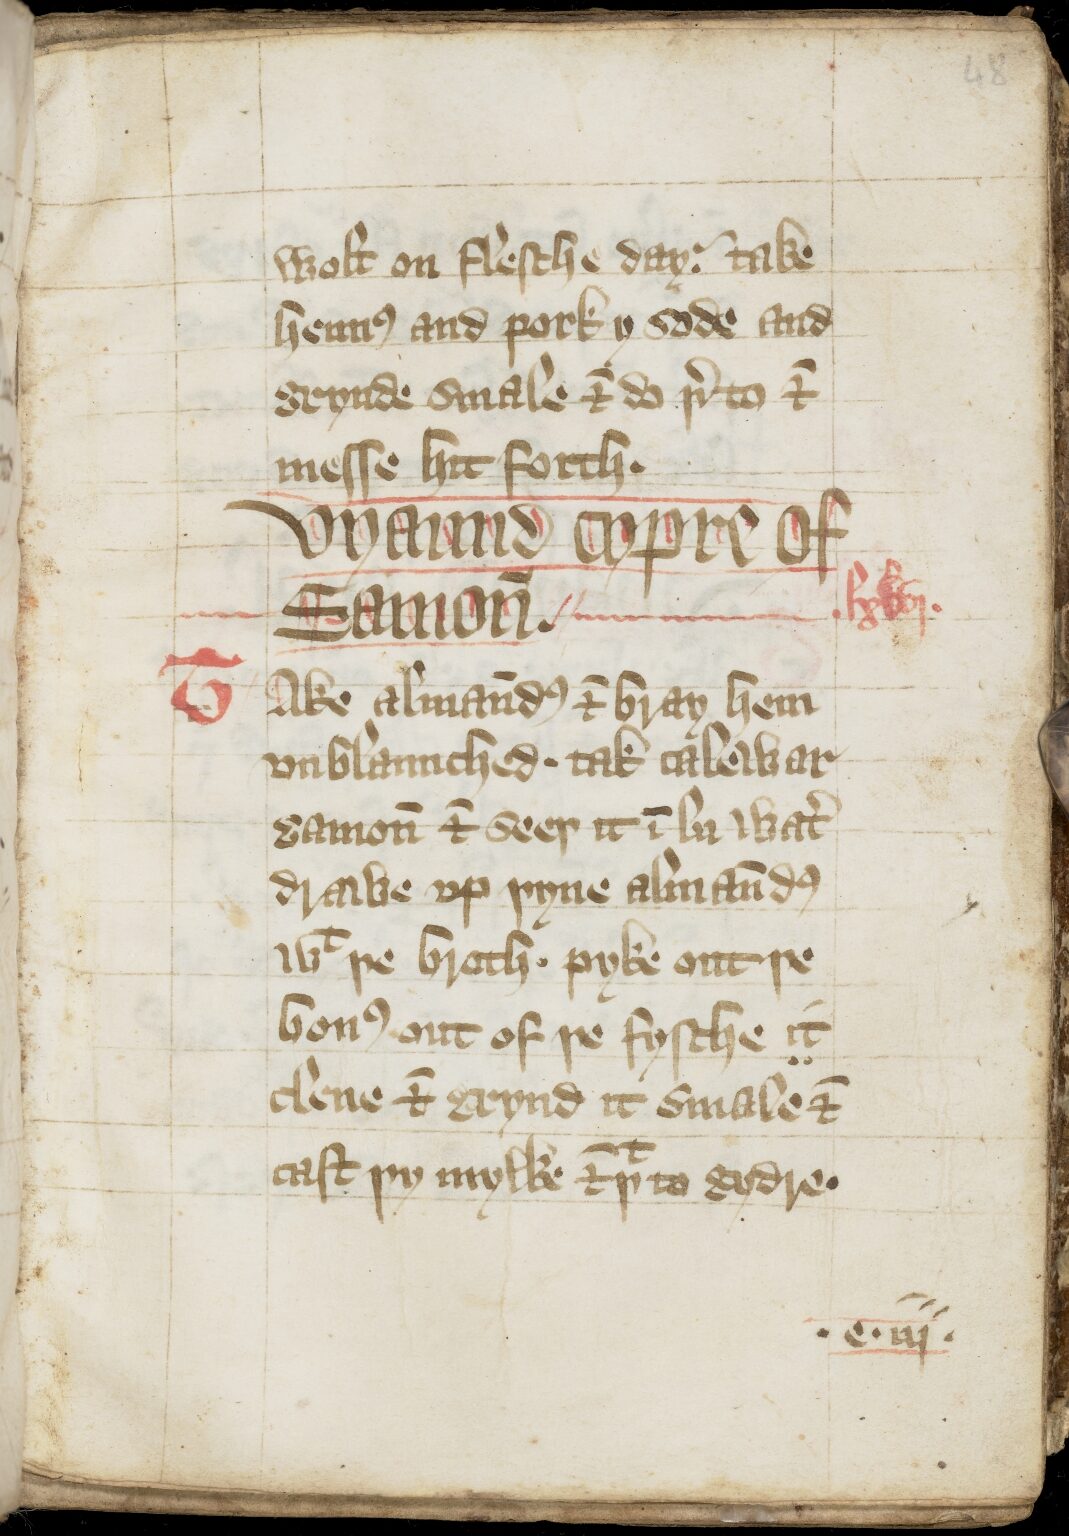 48
wolt on flesche day. take
hennꝯ and pork y sode and
grynde smale ⁊ do þͬto ⁊
messe hit forth.
Vyaund cypre of
Samon̄.
.lxxvij.
TAke alman̄dꝯ ⁊ bray hem
vnblaunched. tak calewar
samon̄ ⁊ seeþ it ī lu watͬ
drawe vp þyne alman̄dꝯ
wᵗ þe broth. pyke out þe
bonꝯ out of þe fysche it
clene ⁊ grynd it smale ⁊
cast þy mylke ⁊ þᵗ to gydre.
.e.iij.